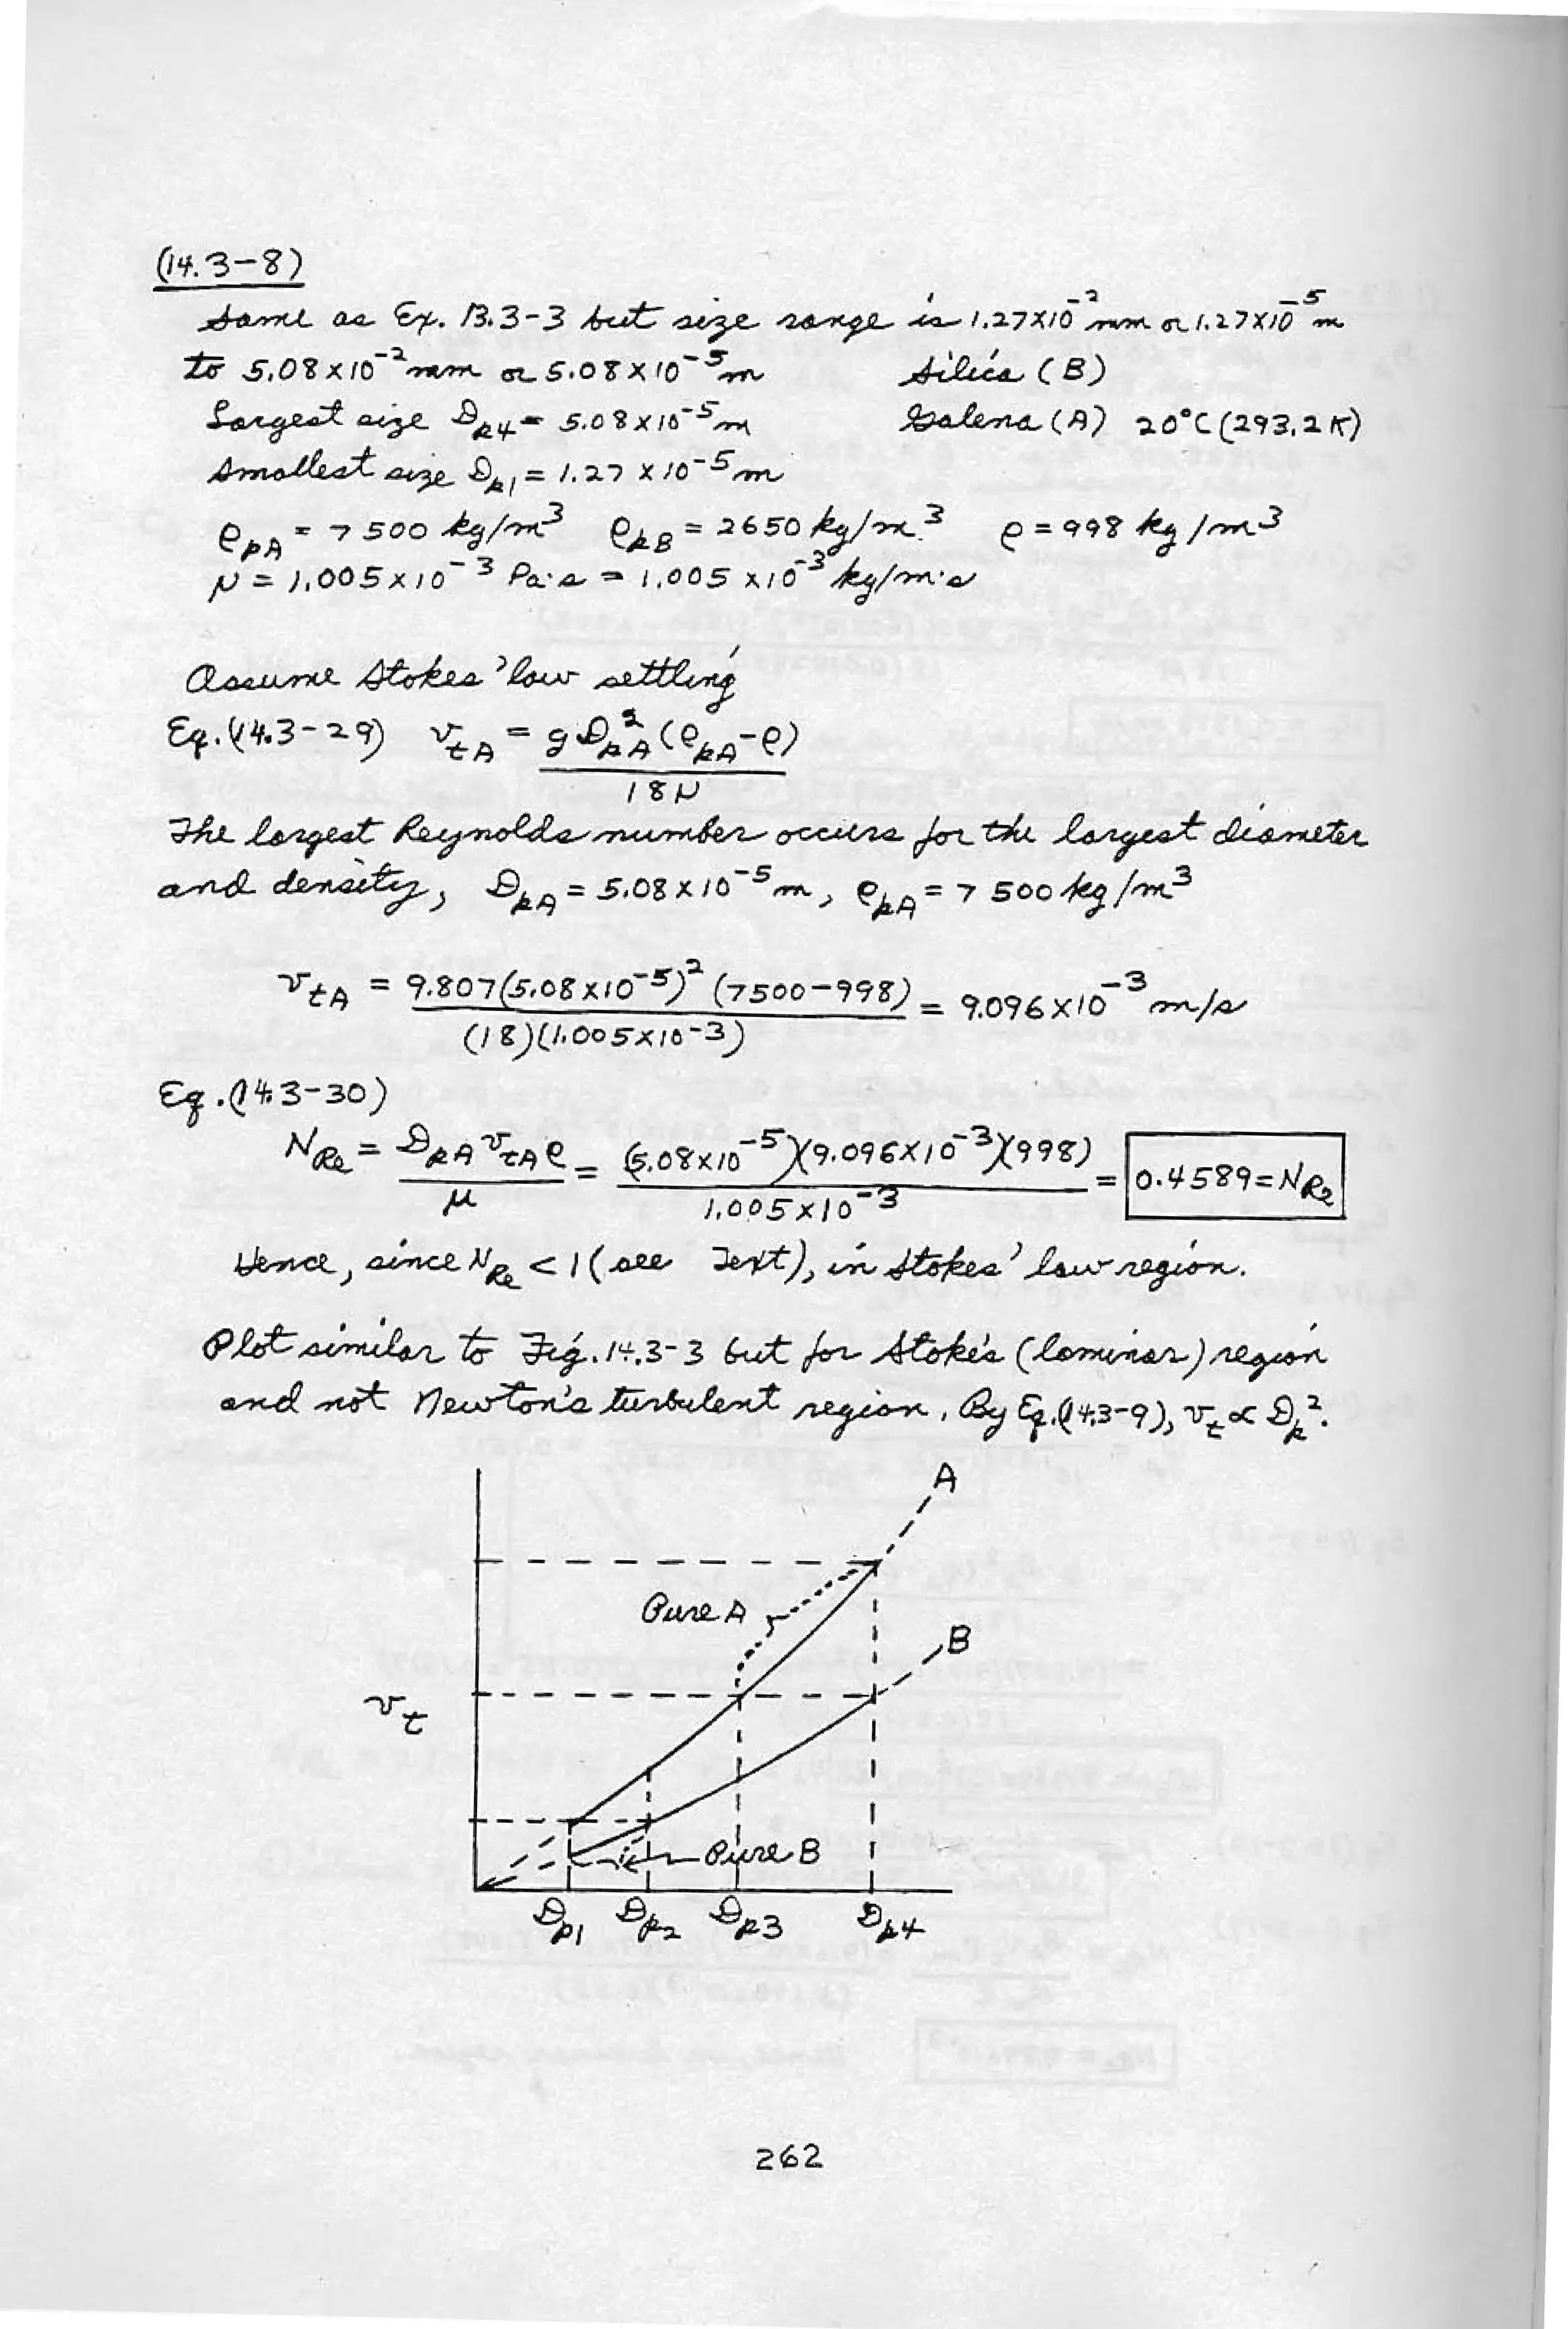 (14.3-8)
Same as Ex. 13.3-3 but size range is 1.27x10^-2 mm or 1.27x10^-5 m
to 5.08x10^-2 mm or 5.08x10^-5 m Silica (B)
Largest size Dp4 = 5.08x10^-5 m Galena (A) 20°C (293.2K)
Smallest size Dp1 = 1.27 x 10^-5 m
ρpA = 7500 kg/m^3 ρpB = 2650 kg/m^3 ρ = 998 kg/m^3
μ = 1.005x10^-3 Pa·s = 1.005 x10^-3 kg/m·s
Assume Stokes' law settling
Eq.(14.3-29) vtA = gDpA^2 (ρpA-ρ)
18μ
The largest Reynolds number occurs for the largest diameter
and density, DpA = 5.08x10^-5 m, ρpA = 7500 kg/m^3
vtA = 9.807(5.08x10^-5)^2 (7500-998) = 9.096x10^-3 m/s
(18)(1.005x10^-3)
Eq.(14.3-30)
NRe = DpA vtA ρ = (5.08x10^-5)(9.096x10^-3)(998) = 0.4589=NRe
μ 1.005x10^-3
Hence, since NRe < 1 (see Text), in Stokes' law region.
Plot similar to Fig. 14.3-3 but for Stoke's (laminar) region
and not Newton's turbulent region. By Eq.(14.3-9), vt ∝ Dp^2.
A
Pure A
B
vt
Pure B
Dp1 Dp2 Dp3 Dp4
262